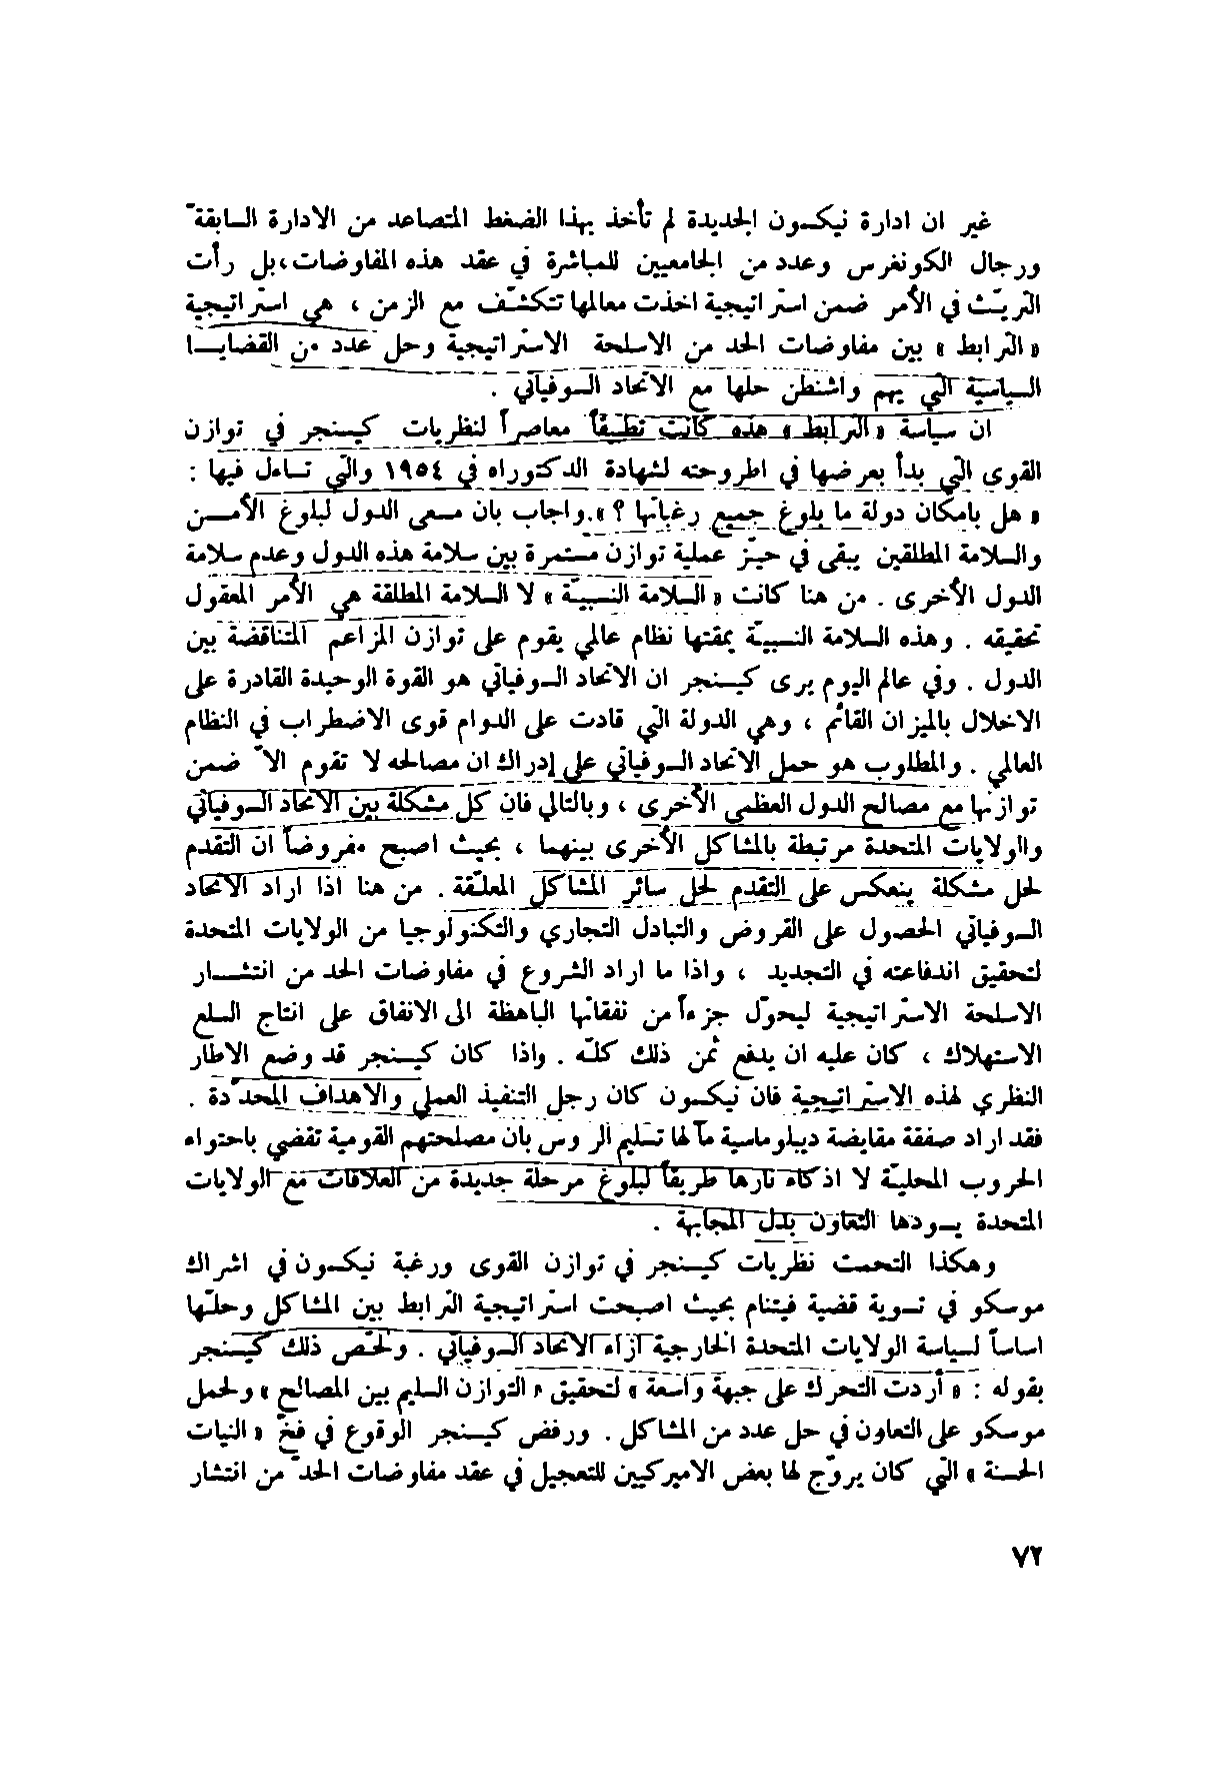 غير ان ادارة نيكسون الجديدة لم تأخذ بهذا الضغط المتصاعد من الادارة السابقة
ورجال الكونغرس وعدد من الجامعيين للمباشرة في عقد هذه المفاوضات، بل رأت
التريّث في الأمر ضمن استراتيجية اخذت معالمها تتكشّف مع الزمن ، هي استراتيجية
« الترابط » بين مفاوضات الحد من الاسلحة الاستراتيجية وحل عدد من القضايـــا
السياسية التي يهم واشنطن حلها مع الاتحاد السوفياتي .
ان سياسة « الترابط » هذه كانت تطبيقاً معاصراً لنظريات كيسنجر في توازن
القوى التي بدأ بعرضها في اطروحته لشهادة الدكتوراه في ١٩٥٤ والتي تساءل فيها :
« هل بامكان دولة ما بلوغ جميع رغباتها ؟ ». واجاب بان مسعى الدول لبلوغ الأمـــن
والسلامة المطلقين يبقى في حيّز عملية توازن مستمرة بين سلامة هذه الدول وعدم سلامة
الدول الأخرى . من هنا كانت « السلامة النسبيّة » لا السلامة المطلقة هي الأمر المعقول
تحقيقه . وهذه السلامة النسبيّة يمقتها نظام عالمي يقوم على توازن المزاعم المتناقضة بين
الدول . وفي عالم اليوم يرى كيسنجر ان الاتحاد السوفياتي هو القوة الوحيدة القادرة على
الاخلال بالميزان القائم ، وهي الدولة التي قادت على الدوام قوى الاضطراب في النظام
العالمي . والمطلوب هو حمل الاتحاد السوفياتي على إدراك ان مصالحه لا تقوم الاّ ضمن
توازنها مع مصالح الدول العظمى الأخرى ، وبالتالي فان كل مشكلة بين الاتحاد السوفياتي
والولايات المتحدة مرتبطة بالمشاكل الأخرى بينهما ، بحيث اصبح مفروضاً ان التقدم
لحل مشكلة ينعكس على التقدم لحل سائر المشاكل المعلّقة . من هنا اذا اراد الاتحاد
السوفياتي الحصول على القروض والتبادل التجاري والتكنولوجيا من الولايات المتحدة
لتحقيق اندفاعته في التجديد ، واذا ما اراد الشروع في مفاوضات الحد من انتشـــار
الاسلحة الاستراتيجية ليحوّل جزءاً من نفقاتها الباهظة الى الانفاق على انتاج السلع
الاستهلاك ، كان عليه ان يدفع ثمن ذلك كلّه . واذا كان كيسنجر قد وضع الاطار
النظري لهذه الاستراتيجية فان نيكسون كان رجل التنفيذ العملي والاهداف المحدّدة .
فقد اراد صفقة مقايضة ديبلوماسية مآلها تسليم الروس بان مصلحتهم القومية تقضي باحتواء
الحروب المحليّة لا اذكاء نارها طريقاً لبلوغ مرحلة جديدة من العلاقات مع الولايات
المتحدة يسودها التعاون بدل المجابهة .
وهكذا التحمت نظريات كيسنجر في توازن القوى ورغبة نيكسون في اشراك
موسكو في تسوية قضية فيتنام بحيث اصبحت استراتيجية الترابط بين المشاكل وحلّها
اساساً لسياسة الولايات المتحدة الخارجية ازاء الاتحاد السوفياتي . ولخّص ذلك كيسنجر
بقوله : « أردت التحرك على جبهة واسعة » لتحقيق « التوازن السليم بين المصالح » ولحمل
موسكو على التعاون في حل عدد من المشاكل . ورفض كيسنجر الوقوع في فخّ « النيات
الحسنة » التي كان يروّج لها بعض الاميركيين للتعجيل في عقد مفاوضات الحدّ من انتشار
٧٢